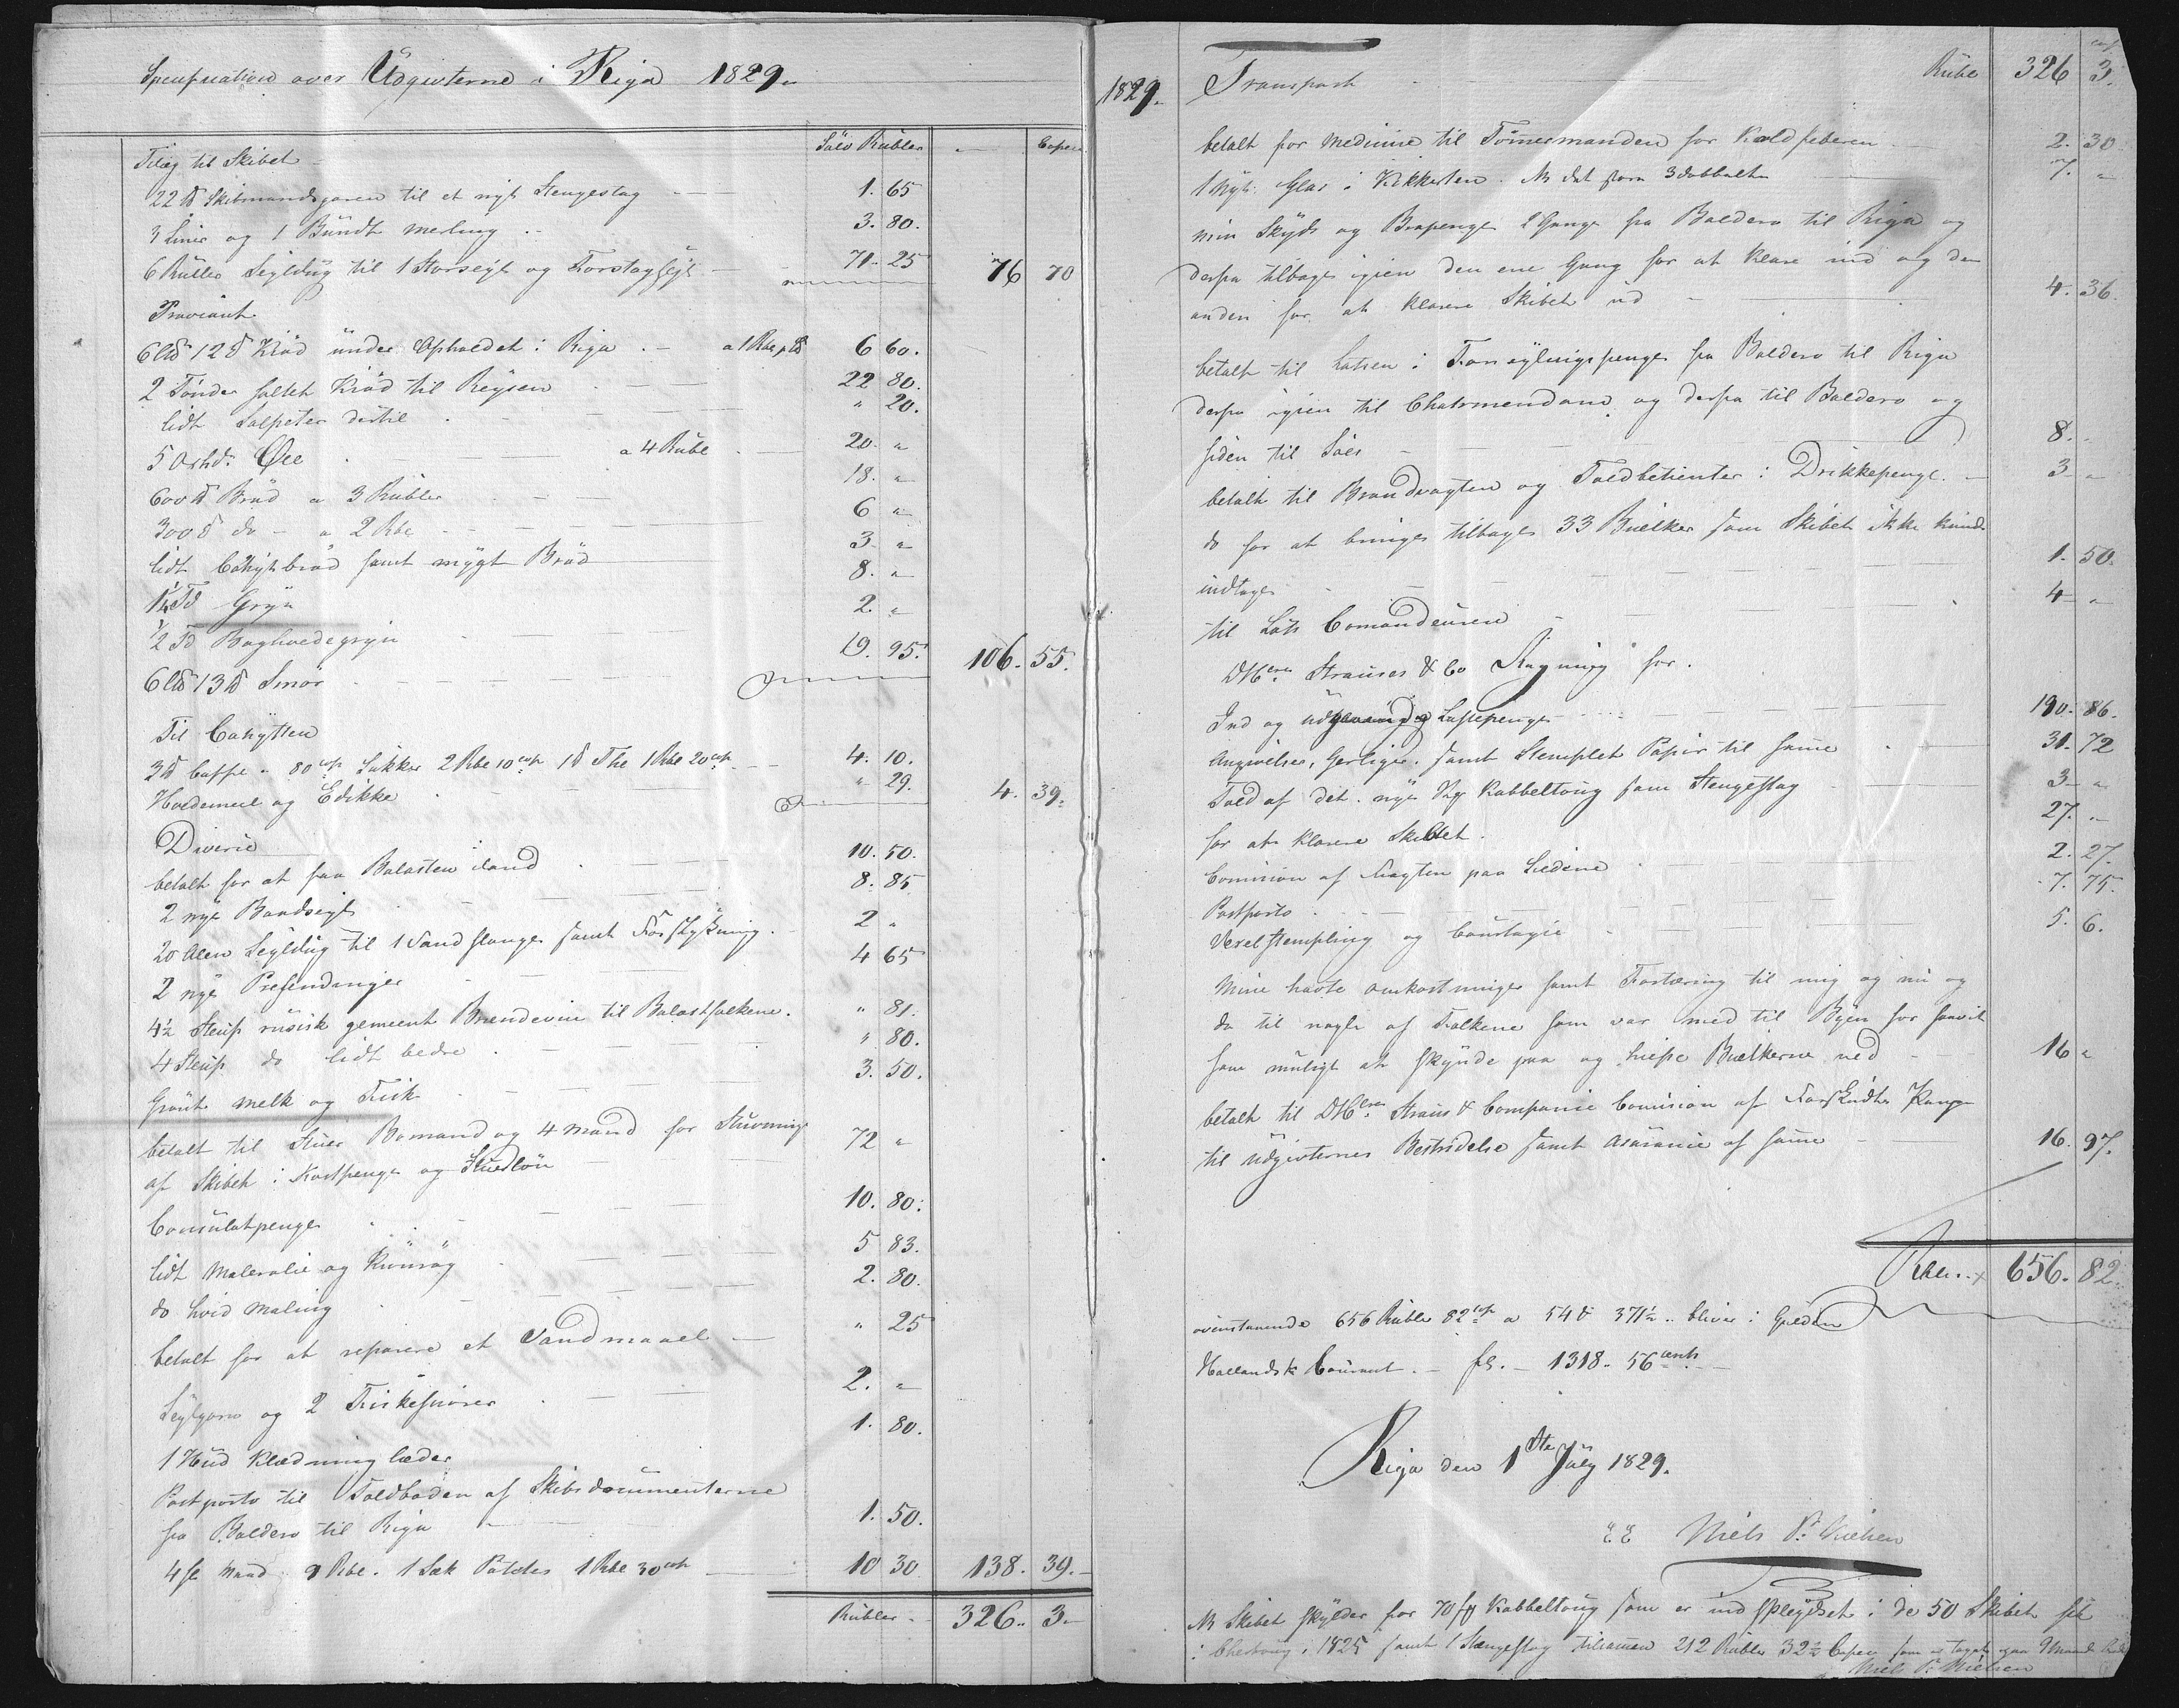 Specification over Udgivterne i Riga 1829.
Sølv Rubler - Copec
Tilæg til Skibet
22 ℔ Skibmandsgaren til et nyt Stengestag 1. 65
3 Liner og 1 Bundt merling 3. 80.
6 Ruller Seyldug til 1 Storseyl og Forstagseyl 71. 25 76 70
Proviant
6 L℔ 12 ℔ Kiød under Opholdet i Riga a 1 Rbe p L℔ 6 60.
2 Tønder saltet Kiød til Reysen 22 80.
lidt Salpeter dertil " 20.
5 Oxhd: Øll a 4 Ruble 20. "
600 ℔ Brød a 3 Rubler 18. "
300 ℔ do - a 2 Rbe 6 "
lidt Cahytbrød samt mygt Brød 3 "
1¼ Td Gryn 8. "
½ Td Boghvedegryn 2. "
6 L℔ 13 ℔ Smør 19. 95. 106. 55.
Til Cahytten
3 ℔ Caffe a 80 cop Sukker 2 Rbe 10 cop 1 ℔ The 1 Rbe 20 cop 4. 10.
Hvedemeel og Edikke " 29. 4. 39.
Diverse
betalt for at faa Balasten iland 10. 50.
2 nye Bandseyl 8. 85
20 Alen Seyldug til 1 Vandslange samt Forstykning. 2 "
2 nye Presendinger 4 65
4½ Steup rusisk gemeent Brendeviin til Balastfolkene. " 81.
4 Steup do lidt bedre " 80.
Grønt melk og Fisk 3. 50.
betalt til Stuer Bomand og 4 Mand for Stuvning
af Skibet i Kostpenge og Stuerløn 72 "
Consulatpenge 10. 80.
lidt Maleralie og Kiønrøg 5 83.
do hvid Maling 2. 80.
betalt for at reparere et Vandmaael " 25
Seylgarn og 2 Fiskesnører 2. "
1 Hud Klædning læder 1. 80.
Postporto til Toldboden af Skibsdocumenterne
fra Boldero til Riga 1. 50.
4 fl Mand 9 Rbe. 1 Sæk Potetes 1 Rbe 30 cop 10 30 138. 39.
Rubler 326. 3
1829. Transport Ruble 326 3.
betalt for Medicine til Tømermanden for Koldfeberen 2. 30
1 Nyt Glas i Kikkerten. NB det store 3dobbelte 7. "
min Skyds og Bropenge 2 Gange fra Boldero til Riga og
derfra tilbage igien den ene Gang for at klare ind og den
anden for at klarere Skibet ud 4. 36.
betalt til Lotsen i Forseylingspenge fra Boldero til Riga
derfra igien til og derfra til Boldero og
siden til Søes 8. "
betalt til Brandvagten og Toldbetienter i Drikkepenge 3 "
do for at bringe tilbage 33 Bielker som Skibet ikke kunde
indtage 1. 50.
til Lots Comandeuren 4 "
DHerr Strauses & Co Regning for.
Ind og udgaaende Lastepenge 190. 86.
Angivelse, Gerligie. samt Stemplet Papir til same 31. 72
Told af det nye Kabbeltoug som Stengestag 3 "
for at klarere Skibet 27. "
Comision af Fragten paa Stedene 2. 27.
Postporto 7. 75.
Vexelstempling og Courtagie 5. 6.
Mine havte omkostninger samt Fortæring til mig og nu og
da til nogle af Folkene som var med til Byen for saavit
som muligt at skynde paa og hiespe Bielkerne ned 16 "
betalt til DHerr Straus & Compagnie Comision af Forskudte Penge
til Udgivternes Bestridelse samt Asurance af same 16. 97.
Rbler 656. 82.
ovenstaaende 656 Rubler 82 cop a 54 & 371½ bliver i Gylden
Hollandsk Courant - fl. - 1318. 56 cents
Riga den 1ste July 1829.
EE Niels P: Nielsen
NB Skibet skylder for 70 Kabbeltoug som er indspleydset i de 50 Skibet fik
i 1825 samt 1 Stængestag tilsamen 212 Rubler 32½ Copec som er taget paa 9 Maaned
Niels P: Nielsen